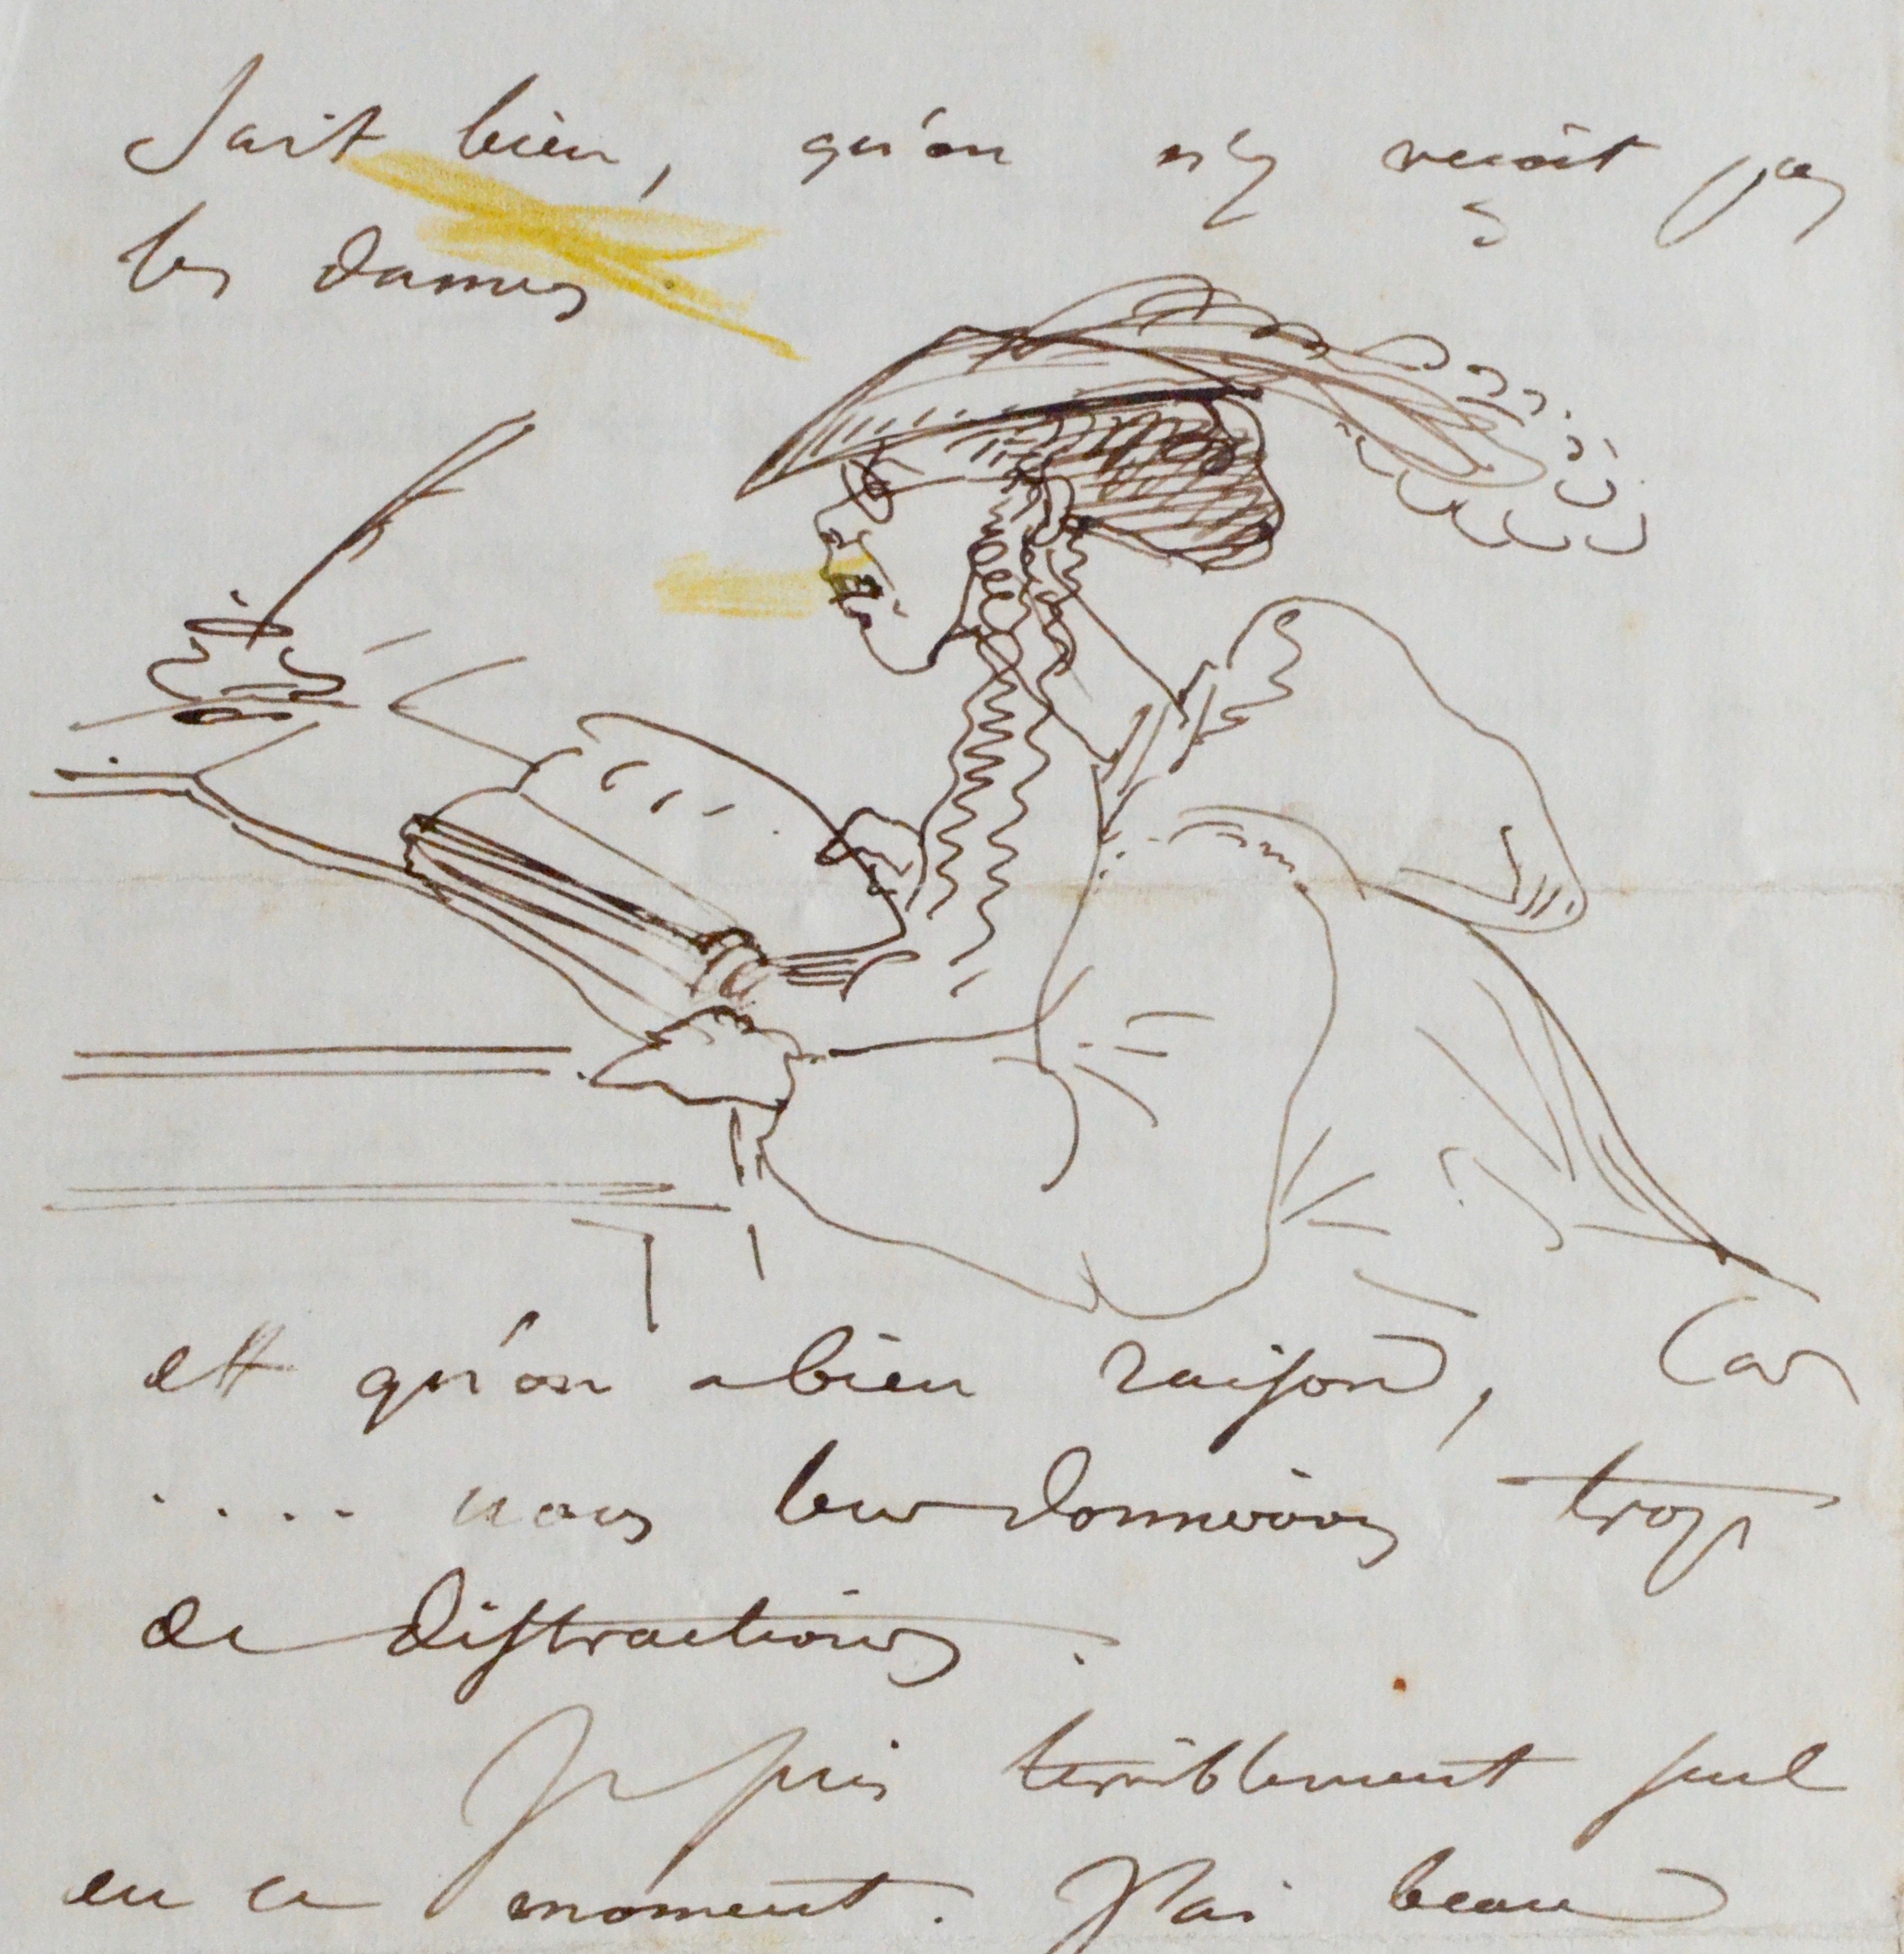 Sait bien, qu'on n'y reçoit pas
les dames
et qu'on a bien raison, Car
.... nous leur donnerions trop
de distractions.
Je suis terriblement seul
en ce moment. J'ai beau